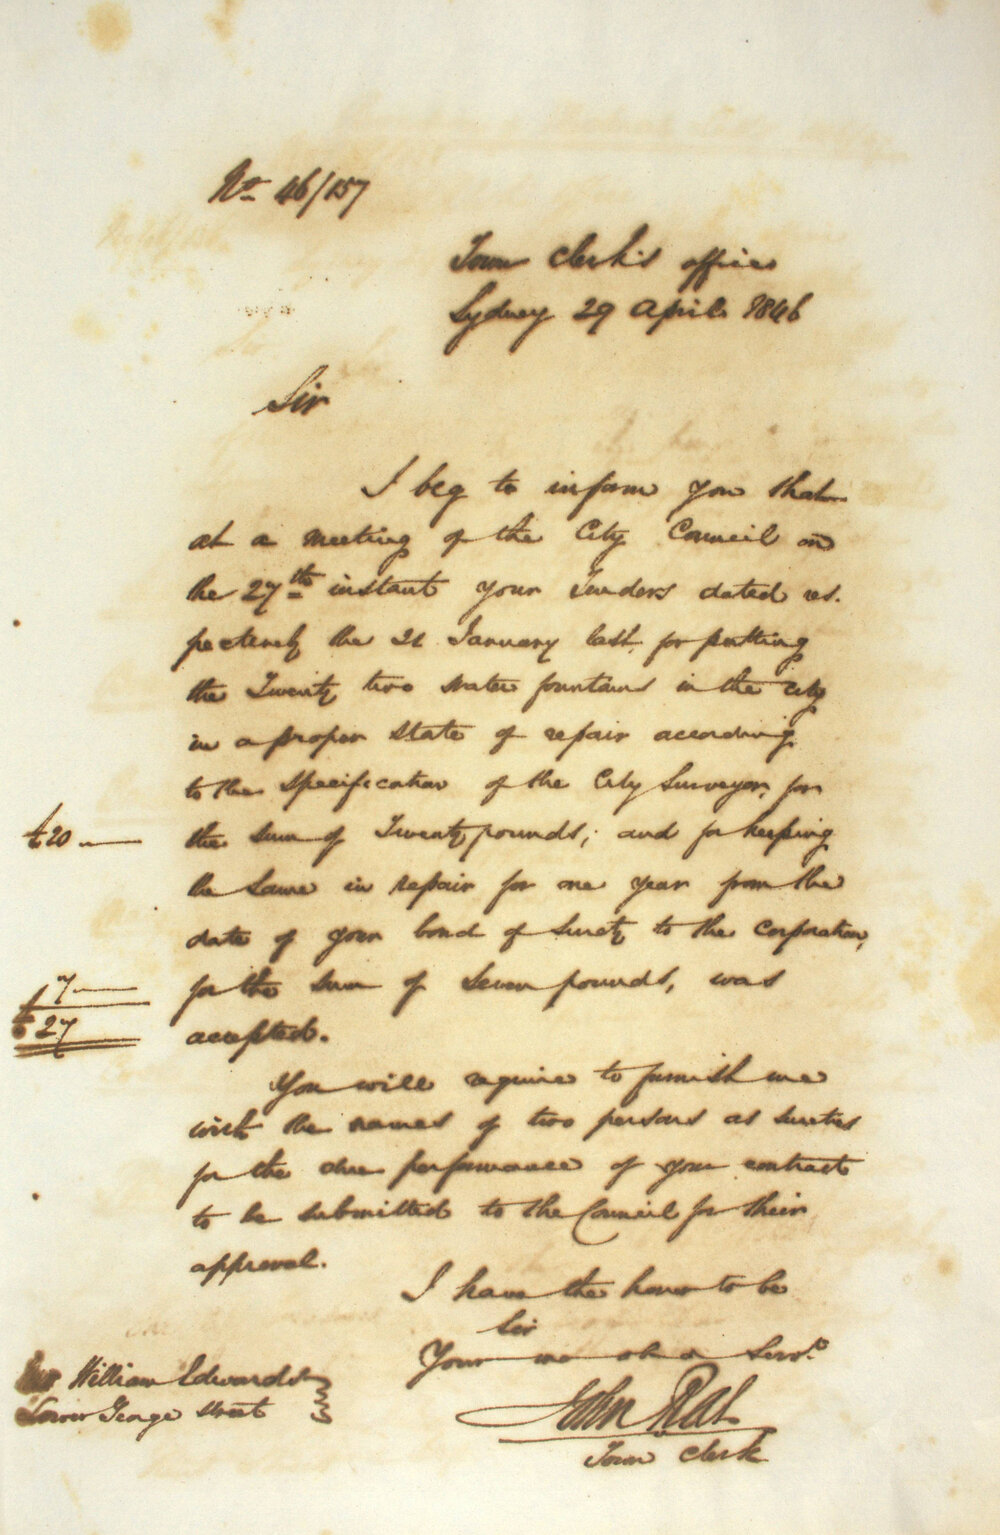 No 46/157
Town Clerk's office
Sydney 29 April 1846
Sir
I beg to inform you that
at a meeting of the City Council on
the 27th instant your Tenders dated res.
pectively the 21 January last, for putting
the Twenty two water fountains in the City
in a proper state of repair according
to the specification of the City Surveyor, for
£20 — the sum of Twenty pounds; and for keeping
the same in repair for one year from the
date of your bond of surety to the Corporation,
7 — for the sum of seven pounds, was
£27 accepted.
You will require to furnish me
with the names of two persons as sureties
for the due performance of your contract
to be submitted to the Council for their
approval.
I have the honor to be
Sir
Your mo ob Servt
Mr William Edwards
Lower George Street
John Rae
Town Clerk